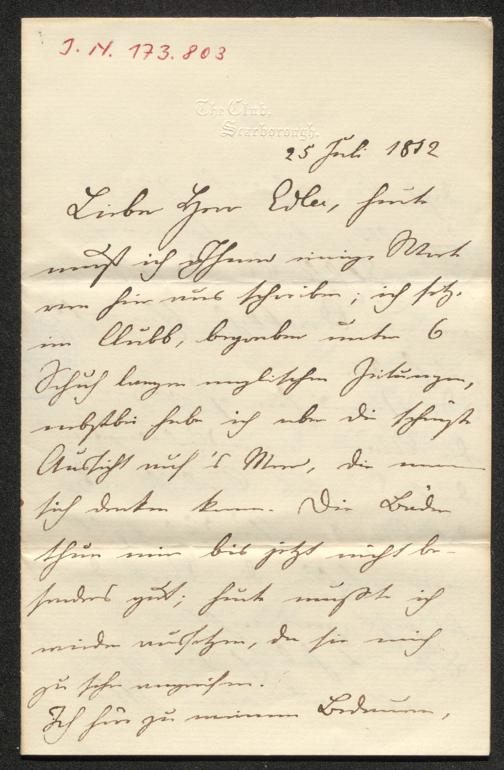 J. N. 173.803
The Club,
Scarborough.
25 Juli 1882
Lieber Herr Edler, heute
muß ich Ihnen einige Wort
von hier aus schreiben; ich sitze
im Clubb, begraben unter 6
Schuh langen englischen Zeitungen,
nebstbei habe ich aber die schönste
Aussicht auf's Meer, die man
sich denken kann. Die Bäder
thun mir bis jetzt nicht be-
sonders gut; heute mußte ich
wieder aussetzen, da sie mich
zu sehr angreifen.
Ich höre zu meinem Bedauern,